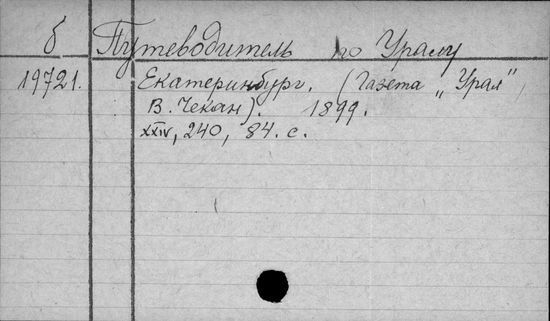 б Путеводитель по Уралу
19721. Екатеринбург. (Газета „Урал",
В. Чекан). 1899.
XXIV, 240, 84. с.